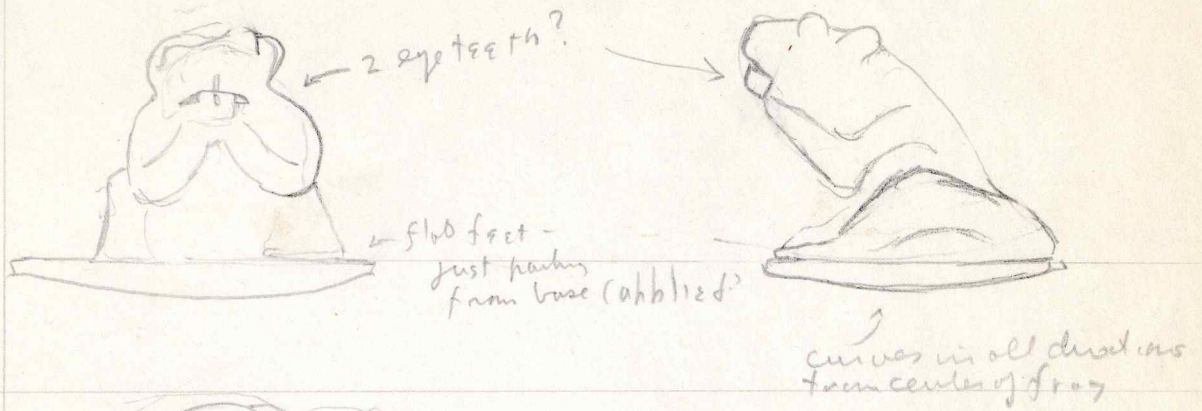 2 eye teeth?
flat feet -
just parting
from base (applied?
curves in all directions
from center of frog